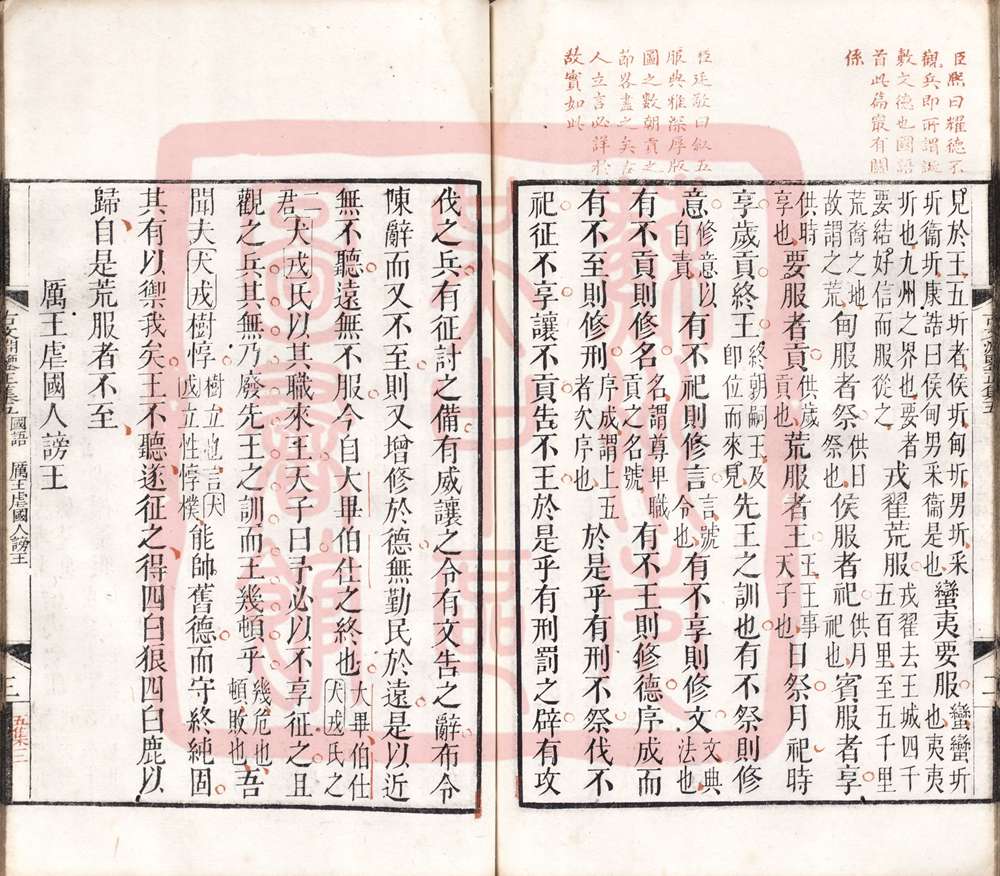 臣熙曰耀德不
觀兵即所謂誕
敷文德也國語
首此篇最有關
係
臣廷敬曰叙五
服典雅深厚版
圖之數朝貢之
節畧盡之矣古
人立言必詳於
故實如此
見於王五圻者侯圻甸圻男圻采圻衞圻康誥曰侯甸男采衞是也蠻夷要服蠻蠻圻也夷夷
圻也九州之界也要者要結好信而服從之戎翟荒服戎翟去王城四千五百里至五千里
荒裔之地故謂之荒甸服者祭供日祭也侯服者祀供月祀也賓服者享
供時享也要服者貢供歲貢也荒服者王王王事天子也日祭月祀時
享歲貢終王終朝嗣王及即位而來見先王之訓也有不祭則修
意修意以自責有不祀則修言言號令也有不享則修文文典法也
有不貢則修名名謂尊卑職貢之名號有不王則修德序成而
有不至則修刑序成謂上五者次序也於是乎有刑不祭伐不
祀征不享讓不貢告不王於是乎有刑罰之辟有攻
二
伐之兵有征討之備有威讓之令有文告之辭布令
陳辭而又不至則又增修於德無勤民於遠是以近
無不聽遠無不服今自大畢伯仕之終也大畢伯仕犬戎氏之
二君犬戎氏以其職來王天子曰予必以不享征之且
觀之兵其無乃廢先王之訓而王幾頓乎幾危也頓敗也吾
聞夫犬戎樹惇樹立也言犬戎立性惇樸能帥舊德而守終純固
其有以禦我矣王不聽遂征之得四白狼四白鹿以
歸自是荒服者不至
厲王虐國人謗王
國語 厲王虐國人謗王
三